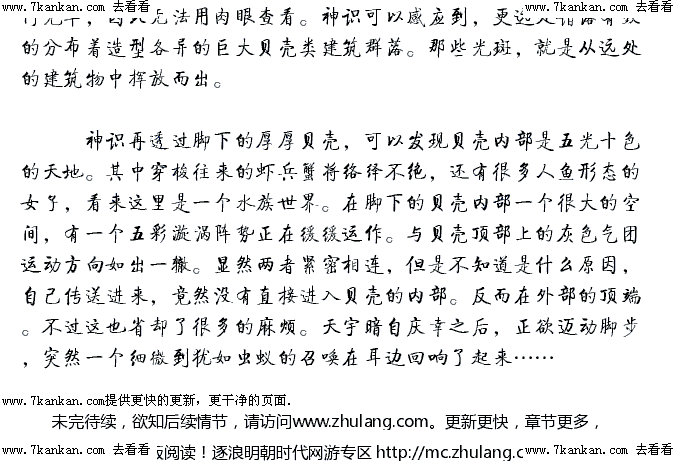 www.7kankan.com 去看看 www.7kankan.com 去看看 www.7kankan.com 去看看
法用肉眼查看。神识可以感应到，更远处错落有致
的分布着造型各异的巨大贝壳类建筑群落。那些光斑，就是从远处
的建筑物中挥放而出。
神识再透过脚下的厚厚贝壳，可以发现贝壳内部是五光十色
的天地。其中穿梭往来的虾兵蟹将络绎不绝，还有很多人鱼形态的
女子，看来这里是一个水族世界。在脚下的贝壳内部一个很大的空
间，有一个五彩漩涡阵势正在缓缓运作。与贝壳顶部上的灰色气团
运动方向如出一辙。显然两者紧密相连，但是不知道是什么原因，
自己传送进来，竟然没有直接进入贝壳的内部。反而在外部的顶端
。不过这也省却了很多的麻烦。天宇暗自庆幸之后，正欲迈动脚步
，突然一个细微到犹如虫蚁的召唤在耳边回响了起来……
www.7kankan.com提供更快的更新，更干净的页面.
未完待续，欲知后续情节，请访问www.zhulang.com。更新更快，章节更多，
www.7kankan.com 去看看 阅读！逐浪明朝时代网游专区 http://mc.zhulang.co www.7kankan.com 去看看